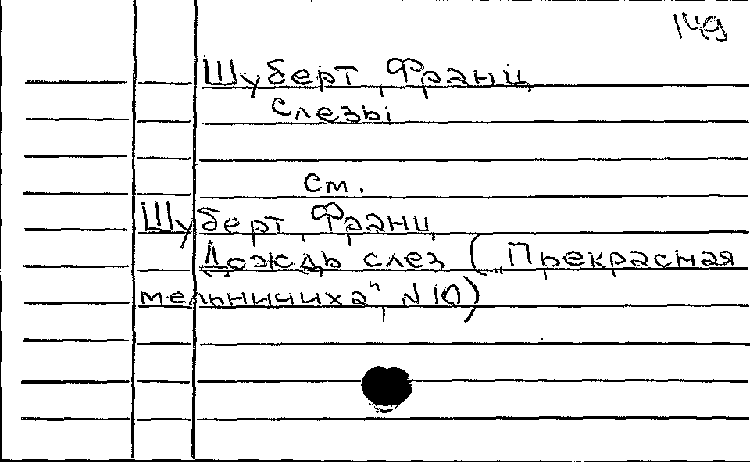 149
Шуберт, Франц
Слезы
см.
Шуберт, Франц
Дождь слез („Прекрасная
мельничиха", N 10)